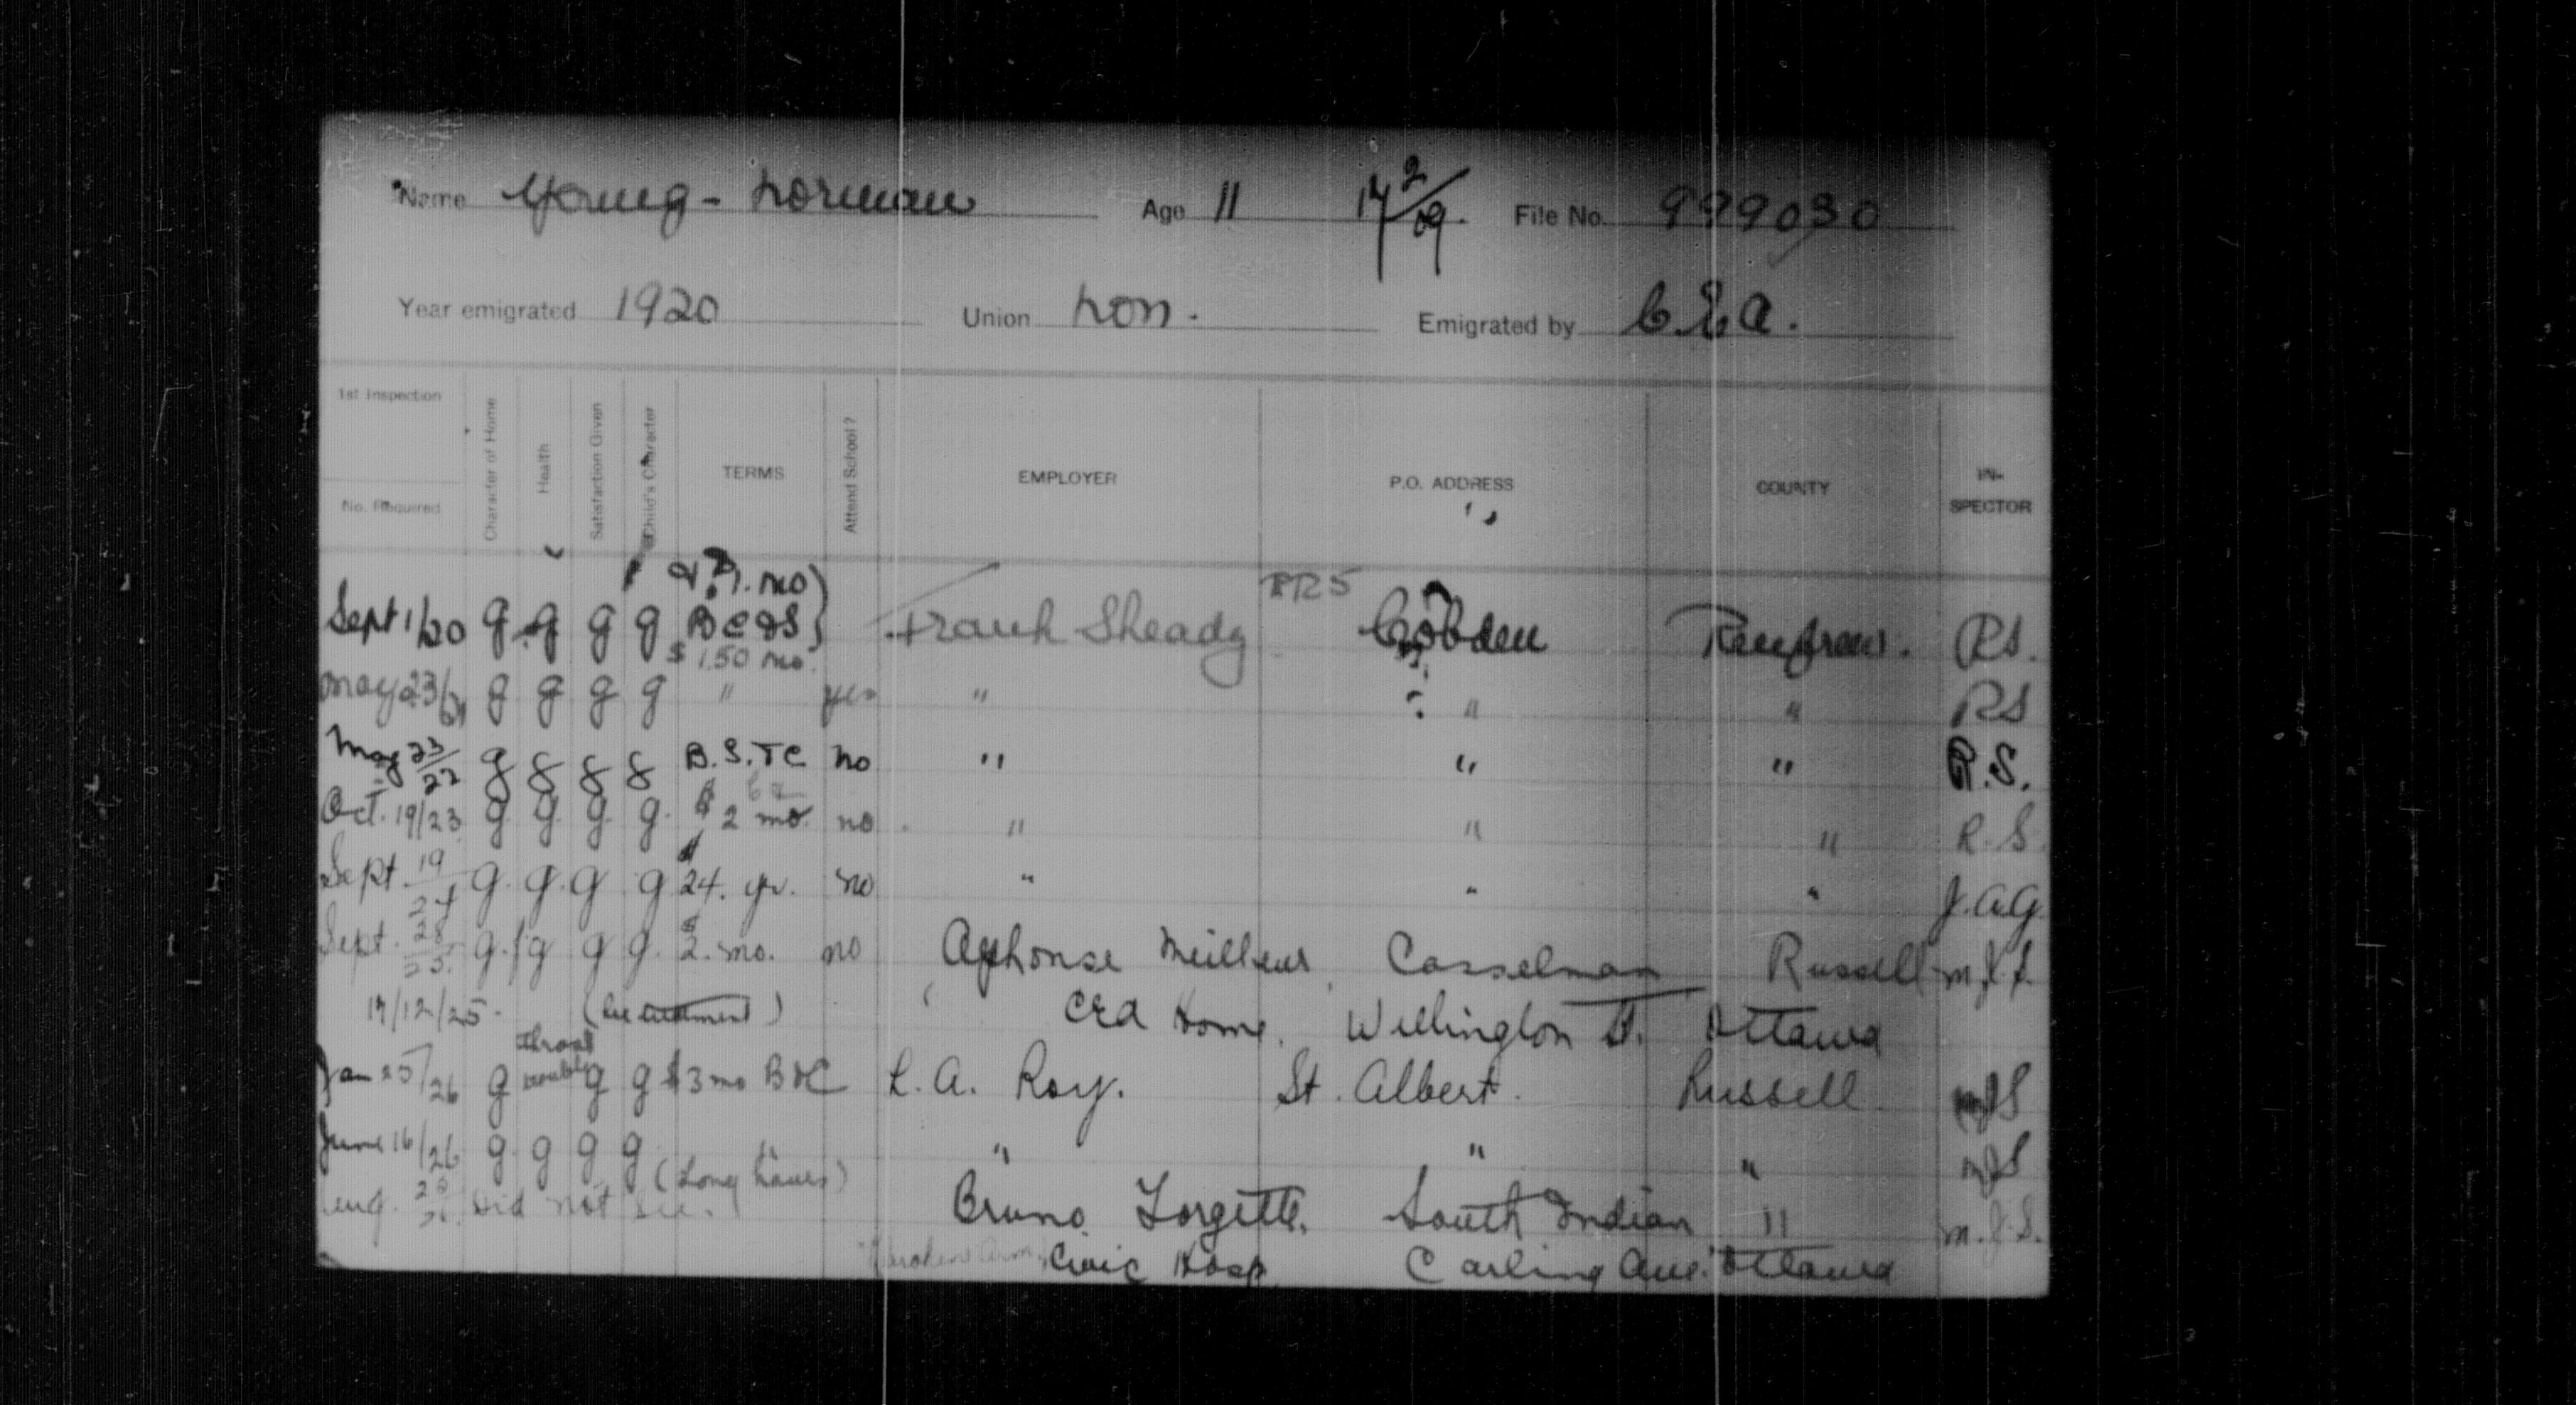 Name Young - Norman Age 11 14 2/09. File No. 999030
Year emigrated 1920 Union Non. Emigrated by C.E.A.
1st Inspection
No. Required
Character of Home
Health
Satisfaction Given
Child's Character
TERMS
Attend School?
EMPLOYER
P.O. ADDRESS
COUNTY
IN-
SPECTOR
1. mo)
Sept 1/20 g g g g B C & S Frank Sheady RR5 Cobden Renfrew. RS.
$1.50 mo.
May 23/21 g g g g " yes " " " RS
May 23/22 g g g g B.S.TC no " " " R.S.
Oct. 19/23 g. g. g. g. $2 mo. no " " " R.S.
Sept. 19/24 g. g. g g 24. yr. no " " " J.A.G.
Sept. 28/25. g. g g g. $2. mo. no Alphonse Meilleur Casselman Russell M.J.S.
17/12/25. CEA Home. Wellington St. Ottawa
throat
Jan 25/26 g trouble g g $3 mo B & C L. A. Roy. St. Albert. Russell MJS
June 16/26 g. g g g " " " " MJS
(Long hours)
Aug. Did not see. Bruno Forgette. South Indian " M.J.S.
Broken arm Civic Hosp. Carling Ave. Ottawa